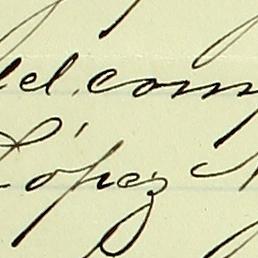 del com
López